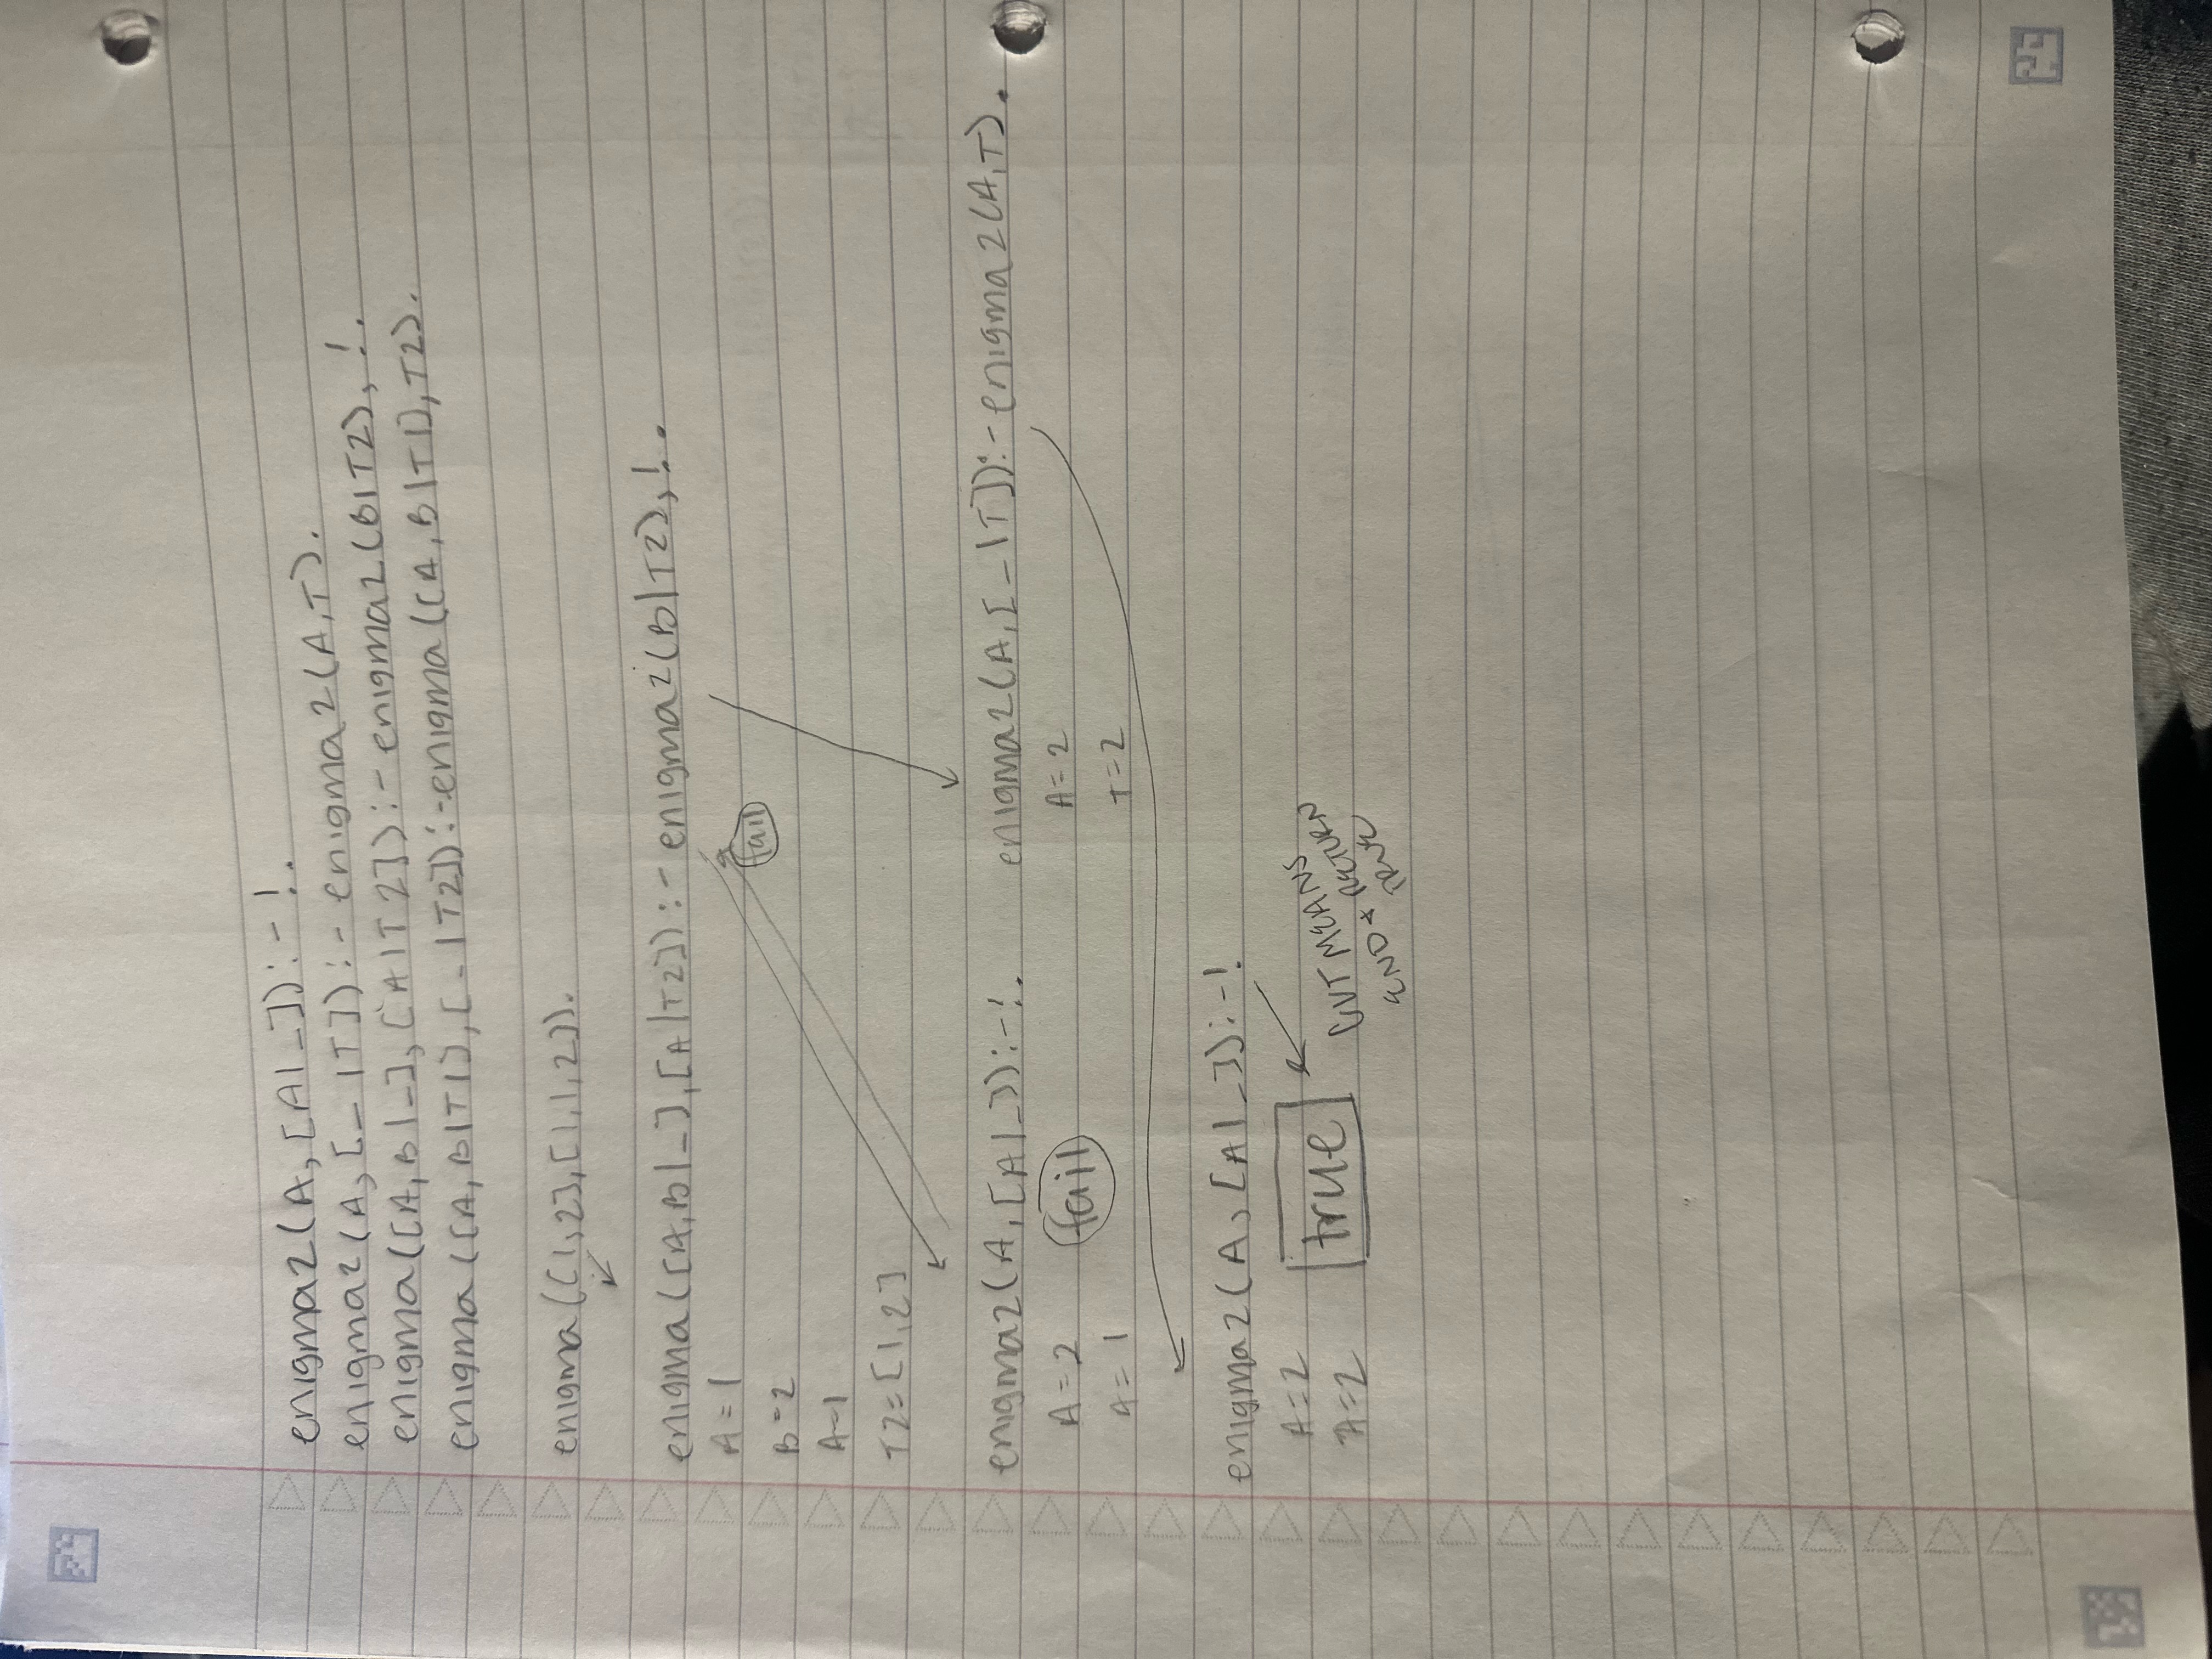 enigma2(A, [A|_]):-!.
enigma2(A, [_|T]):-enigma2(A,T).
enigma([A,B|_], [A|T2]):-enigma2(B|T2),!.
enigma([A,B|T1],[_|T2]):-enigma([A,B|T1],T2).
enigma([1,2],[1,1,2]).
enigma([A,B|_],[A|T2]):-enigma2(B|T2),!.
A=1
fail
B=2
A=1
T2=[1,2]
enigma2(A,[A|_]):-!. enigma2(A,[_|T]):-enigma2(A,T).
A=2 fail A=2
A=1 T=2
enigma2(A,[A|_]):-!
A=2 true CUT MEANS
A=2 END & RETURN
TRUE